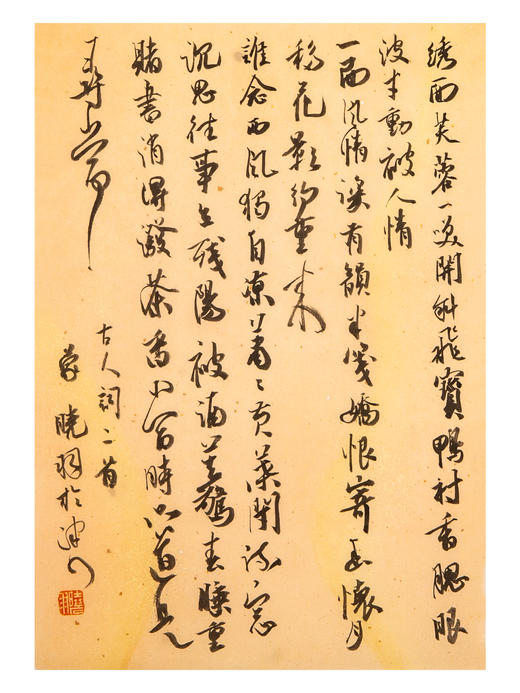 绣面芙蓉一笑開斜飛寶鴨衬香腮眼
波才動被人猜
一面風情深有韻半箋嬌恨寄幽懷月
移花影約重來
誰念西風獨自凉蕭〻黄葉閉疏〻窓
沉思往事立殘陽被酒莫驚春睡重
賭書消得潑茶香當時只道是
尋常
古人詞二首
曉羽於